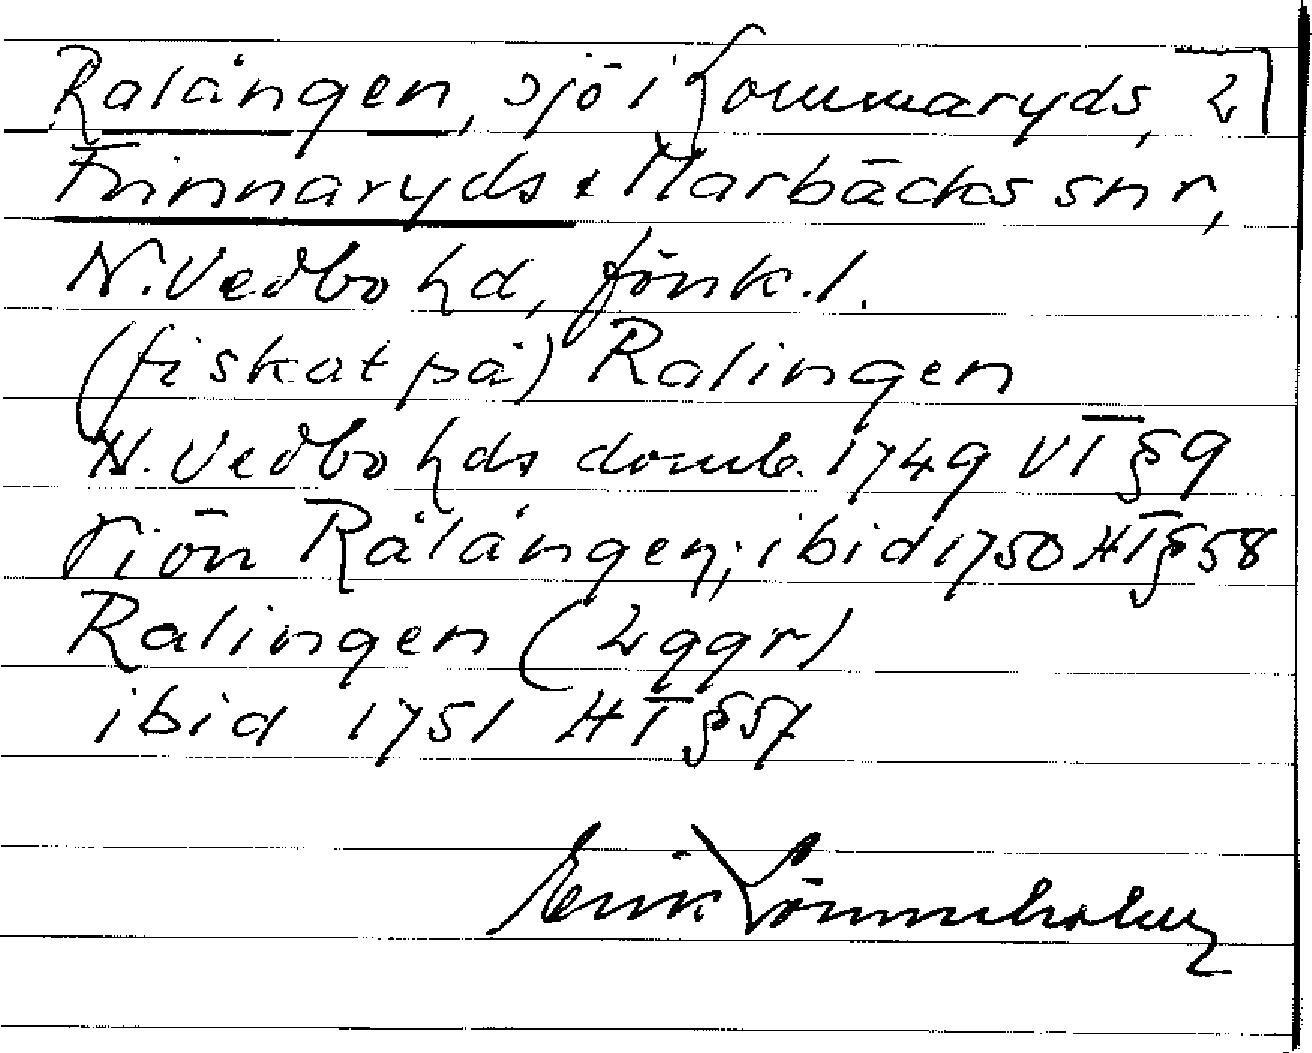 Ralången, sjö i Lommaryds, 2
Frinnaryds & Marbäcks snr,
N. Vedbo hd, Jönk. l.
(fiskat på) Ralingen
N. Vedbo hds domb. 1749 VT § 9
Siön Rålången; ibid 1750 HT § 58
Ralingen (2 ggr)
ibid 1751 HT § 57
Erik Lönnholm